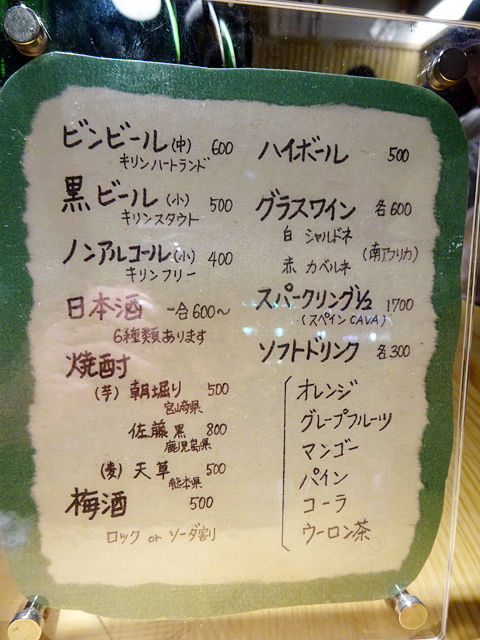 ビンビール(中) 600
キリンハートランド
黒ビール(小) 500
キリンスタウト
ノンアルコール(小) 400
キリンフリー
日本酒 一合600〜
6種類あります
焼酎
(芋) 朝堀り 500
宮崎県
佐藤 黒 800
鹿児島県
(麦) 天草 500
熊本県
梅酒 500
ロック or ソーダ割
ハイボール 500
グラスワイン 各600
白 シャルドネ
(南アフリカ)
赤 カベルネ
スパークリング1/2 1700
(スペインCAVA)
ソフトドリンク 各300
オレンジ
グレープフルーツ
マンゴー
パイン
コーラ
ウーロン茶